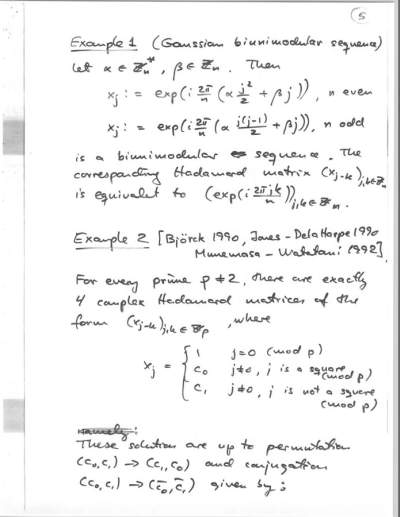 5
Example 1 (Gaussian biunimodular sequence)
Let α ∈ ℤₙ*, β ∈ ℤₙ. Then
xⱼ := exp(i 2π/n (α j²/2 + βj)), n even
xⱼ := exp(i 2π/n (α j(j-1)/2 + βj)), n odd
is a biunimodular sequence. The
corresponding Hadamard matrix (xⱼ₋ₖ)ⱼ,ₖ∈ℤₙ
is equivalent to (exp(i 2πjk/n))ⱼ,ₖ∈ℤₙ.
Example 2 [Björck 1990, Jones - Dela Harpe 1990
Munemasa - Watatani 1992].
For every prime p ≠ 2, there are exactly
4 complex Hadamard matrices of the
form (xⱼ₋ₖ)ⱼ,ₖ∈ℤₚ, where
xⱼ = { 1 j=0 (mod p)
c₀ j≠0, j is a square (mod p)
c₁ j≠0, j is not a square (mod p)
namely:
These solution are up to permutation
(c₀,c₁) → (c₁,c₀) and conjugation
(c₀,c₁) → (c̄₀,c̄₁) given by: